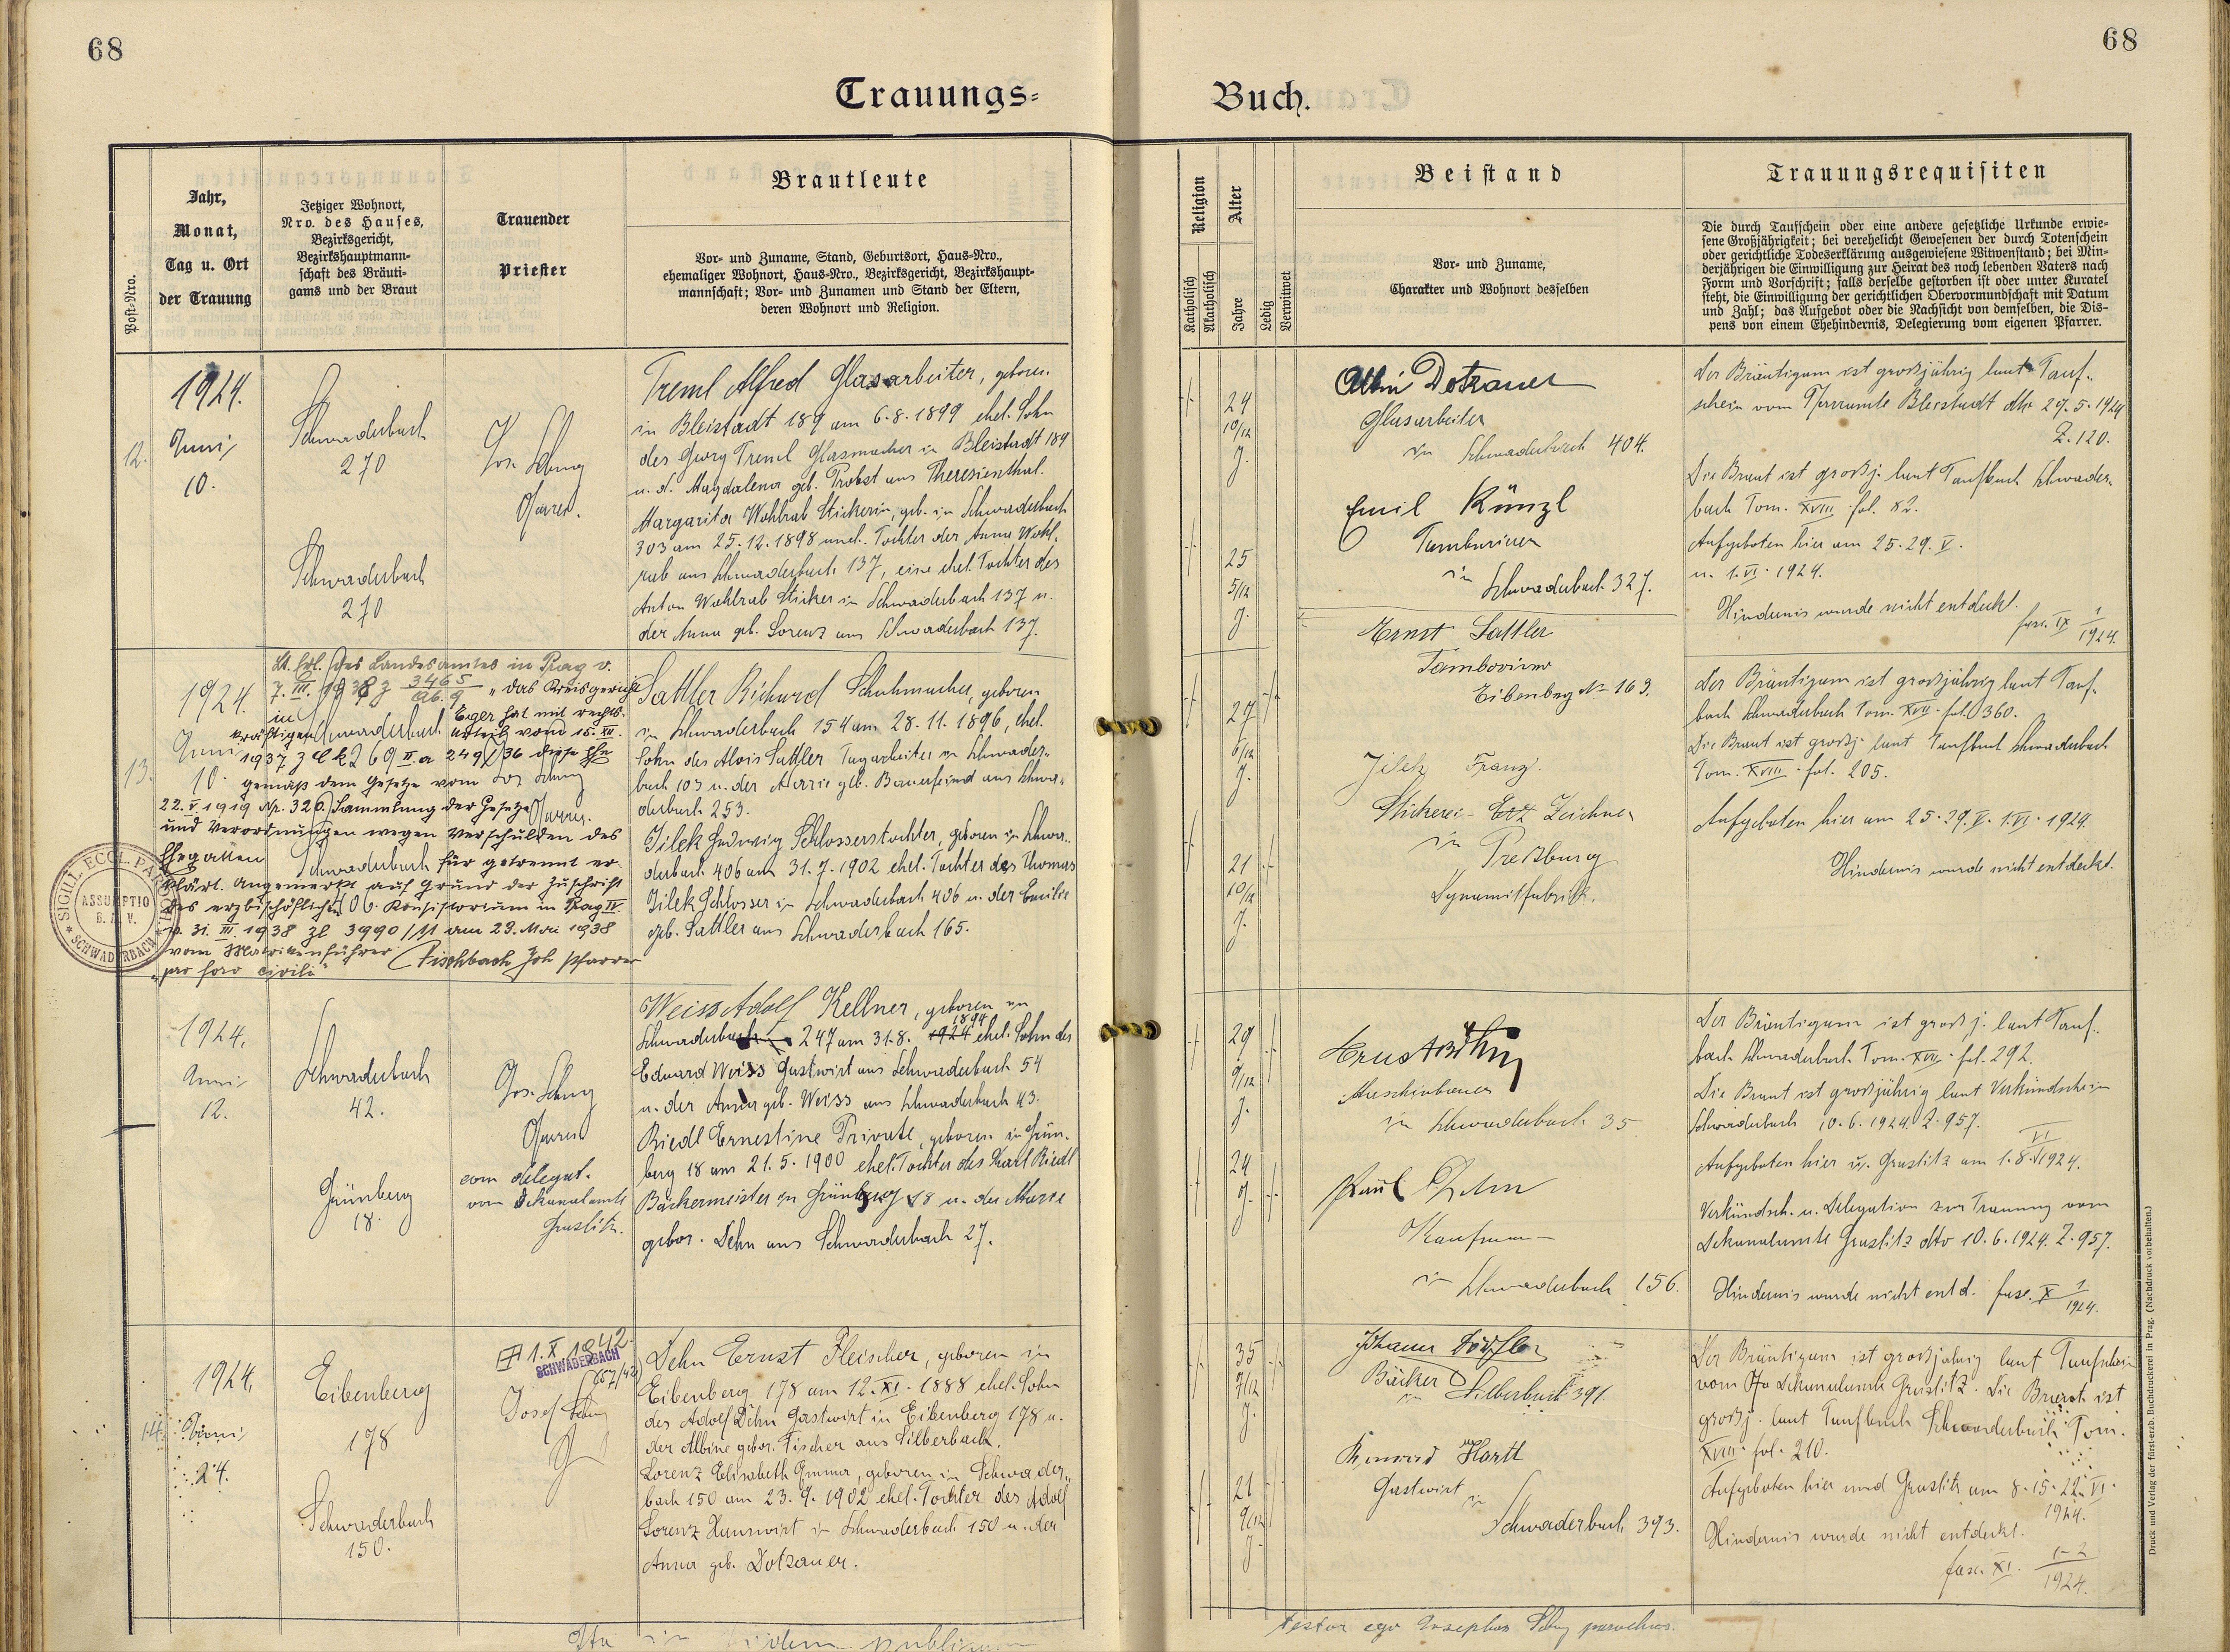 68
68
Trauungs=
Buch.
Post-Nro.
Jahr,
Monat,
Tag u. Ort
der Trauung
Jetziger Wohnort,
Nro. des Hauses,
Bezirksgericht,
Bezirkshauptmann-
schaft des Bräuti-
gams und der Braut
Trauender
Priester
Brautleute
Vor- und Zuname, Stand, Geburtsort, Haus-Nro.,
ehemaliger Wohnort, Haus-Nro., Bezirksgericht, Bezirkshaupt-
mannschaft; Vor- und Zunamen und Stand der Eltern,
deren Wohnort und Religion.
Religion
Katholisch
Akatholisch
Alter
Jahre
Ledig
Verwitwet
Beistand
Vor- und Zuname,
Charakter und Wohnort desselben
Trauungsrequisiten
Die durch Taufschein oder eine andere gesetzliche Urkunde erwie-
sene Großjährigkeit; bei verehelicht Gewesenen der durch Totenschein
oder gerichtliche Todeserklärung ausgewiesene Witwenstand; bei Min-
derjährigen die Einwilligung zur Heirat des noch lebenden Vaters nach
Form und Vorschrift; falls derselbe gestorben ist oder unter Kuratel
steht, die Einwilligung der gerichtlichen Obervormundschaft mit Datum
und Zahl; das Aufgebot oder die Nachsicht von demselben, die Dis-
pens von einem Ehehindernis, Delegierung vom eigenen Pfarrer.
12.
1924.
Juni
10.
Schwaderbach
270
Schwaderbach
270
Jos. Schug
Pfarrer.
Treml Alfred Glasarbeiter, geboren
in Bleistadt 189 am 6.8.1899 ehel. Sohn
des Georg Treml Glasmacher in Bleistadt 189
u. d. Magdalena geb. Probst aus Theresienthal.
Margarita Wohlrab Stickerin, geb. in Schwaderbach
303 am 25.12.1898 unehel. Tochter der Anna Wohl-
rab aus Schwaderbach 137, eine ehel. Tochter des
Anton Wohlrab Sticker in Schwaderbach 137 u.
der Anna geb. Lorenz aus Schwaderbach 137.
24
10/12
J.
25
5/12
J.
Albin Dotzauer
Glasarbeiter
in Schwaderbach 404.
Emil Künzl
Tambourierer
in
Schwaderbach 327.
Ernst Sattler
Eibenberg No 163.
Der Bräutigam ist großjährig laut Tauf-
schein vom Pfarramte Bleistadt dto 29.5.1924
Z. 120.
Die Braut ist großj. laut Taufbuch Schwader-
bach Tom. XVIII. fol. 82.
Aufgeboten hier am 25. 29. V.
u. 1. VI. 1924.
Hindernis wurde nicht entdeckt.
fasc. IX 1/1924.
13.
1924.
Juni
10.
Lt. Erl. des Landesamtes in Prag v.
7. III. 1938 Z 3465 "das Kreisgericht
in Eger hat mit rechts-
kräftigem Urteil vom 15. XII.
1937 diese Ehe
gemäß dem Gesetze vom
22. V. 1919 Nr. 320. Sammlung der Gesetze
und Verordnungen wegen Verschulden des
Ehegatten für getrennt er-
klärt. Angemerkt auf Grund der Zuschrift
des erzbischöflichen Konsistorium in Prag IV.
v. 31. III. 1938 Zl 3990/11 am 23. Mai 1938
vom Matrikenführer Fischbach Joh Pfarrer
"pro foro civili"
Schwaderbach
Schwaderbach
406.
Jos. Schug
Pfarrer.
SIGILL. ECCL. PAROCH.
ASSUMPTIO
B. M. V.
SCHWADERBACH
Sattler Richard Schuhmacher, geboren
in Schwaderbach 154 am 28.11.1896, ehel.
Sohn des Alois Sattler Tagarbeiter in Schwader-
bach 103 u. der Marie geb. Bauerfeind aus Schwa-
derbach 253.
Jilek Hedwig Schlosserstochter, geboren in Schwa-
derbach 406 am 31.7.1902 ehel. Tochter des Thomas
Jilek Schlosser in Schwaderbach 406 u. der Emilie
geb. Sattler aus Schwaderbach 165.
27
6/12
J.
21
10/12
J.
Jilek Franz.
Stickerei- Zeichner
in
Preßburg
Dynamitfabrik.
Der Bräutigam ist großjährig laut Tauf-
buch Schwaderbach Tom. XVII. fol. 360.
Die Braut ist großj. laut Taufbuch Schwaderbach
Tom. XVIII. fol. 205.
Aufgeboten hier am 25. 29. V. 1. VI. 1924.
Hindernis wurde nicht entdeckt.
1924.
Juni
12.
Schwaderbach
42.
Grünberg
18.
Jos. Schug
Pfarrer
com delegat.
vom Dekanalamte
Graslitz.
Weiss Adolf Kellner, geboren in
Schwaderbach 247 am 31.8. 1924 1894 ehel. Sohn des
Eduard Weiss Gastwirt aus Schwaderbach 54
u. der Anna geb. Weiss aus Schwaderbach 43.
Riedl Ernestine Private, geboren in Grün-
berg 18 am 21.5.1900 ehel. Tochter des Karl Riedl
Bäckermeister in Grünberg 18 u. der Marie
gebor. Dehn aus Schwaderbach 27.
29
9/12
J.
24
J.
Ernst
in Schwaderbach 35
Paul Dehn
Kaufmann
in Schwaderbach 156.
Der Bräutigam ist großj. laut Tauf-
buch Schwaderbach Tom. XVII. fol. 292.
Die Braut ist großjährig laut Verkündschein
Schwaderbach 10.6.1924. Z. 957.
Aufgeboten hier u. Graslitz am 1. 8. VI 1924.
Verkündsch. u. Delegation zur Trauung vom
Dekanalamte Graslitz dto 10.6.1924. Z. 957.
Hindernis wurde nicht entd. fasc. X 1/1924.
14.
1924.
Juni
24.
Eibenberg
178
Schwaderbach
150.
1. X. 1942
SCHWADERBACH
Josef Schug
Dehn Ernst Fleischer, geboren in
Eibenberg 178 am 12. XI. 1888 ehel. Sohn
des Adolf Dehn Gastwirt in Eibenberg 178 u.
der Albine gebor. Fischer aus Silberbach.
Lorenz Elisabeth Emma, geboren in Schwader-
bach 150 am 23.9.1902 ehel. Tochter des Adolf
Lorenz Hauswirt in Schwaderbach 150 u. der
Anna geb. Dotzauer.
35
7/12
J.
21
9/12
J.
Johann Dörfler
Bäcker
in Silberbach 391.
Konrad Hartl
Gastwirt
in
Schwaderbach 393.
Der Bräutigam ist großjährig laut Taufschein
vom Dekanalamte Graslitz. Die Braut ist
großj. laut Taufbuch Schwaderbach Tom.
XVIII. fol. 210.
Aufgeboten hier und Graslitz am 8. 15. 22. VI.
1924.
Hindernis wurde nicht entdeckt.
fasc. XI. 1-2/1924.
Ita in fidem publicam
testor ego Josephus Schug parochus.
Druck und Verlag der fürst-erzb. Buchdruckerei in Prag. (Nachdruck vorbehalten.)